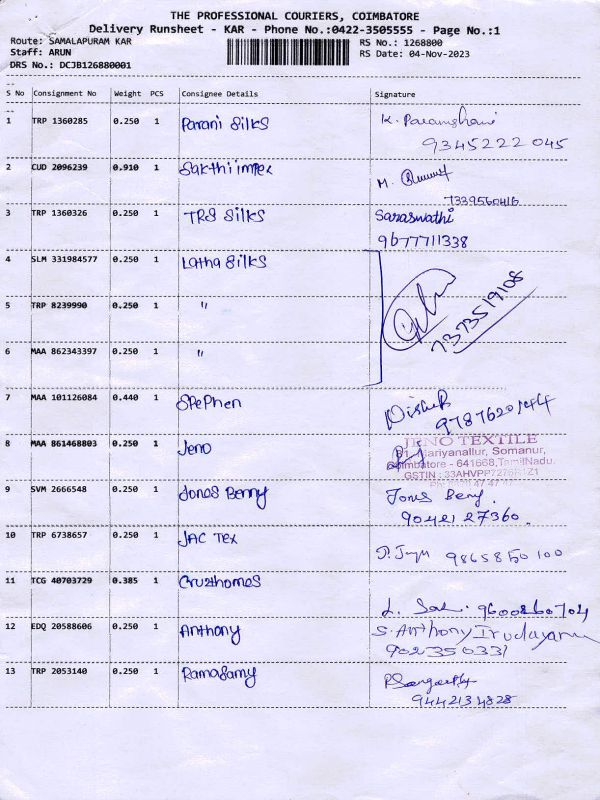 THE PROFESSIONAL COURIERS, COIMBATORE
Delivery Runsheet - KAR - Phone No.:0422-3505555 - Page No.:1
Route: SAMALAPURAM KAR RS No.: 1268800
Staff: ARUN RS Date: 04-Nov-2023
DRS No.: DCJB126880001
S No Consignment No Weight PCS Consignee Details Signature
1 TRP 1360285 0.250 1 Parani Silks K.
9345222045
2 CUD 2096239 0.910 1 Sakthi impex M.
7339560416
3 TRP 1360326 0.250 1 TRS Silks Saraswathi
9677711338
4 SLM 331984577 0.250 1 Latha Silks
5 TRP 8239990 0.250 1 "
7373519108
6 MAA 862343397 0.250 1 "
7 MAA 101126084 0.440 1 Stephen
9787620144
8 MAA 861468803 0.250 1 Jeno
JENO TEXTILE
Mariyanallur, Somanur,
Coimbatore - 641668, TamilNadu.
9 SVM 2666548 0.250 1 Jones Benny Jones Beny.
9042127360.
10 TRP 6738657 0.250 1 JAC Tex 9865850100
11 TCG 40703729 0.385 1 Cruzthomas
9600860704
12 EDQ 20588606 0.250 1 Anthony S. Anthony Irudayam
902350331
13 TRP 2053140 0.250 1 Ramasamy
9442134828